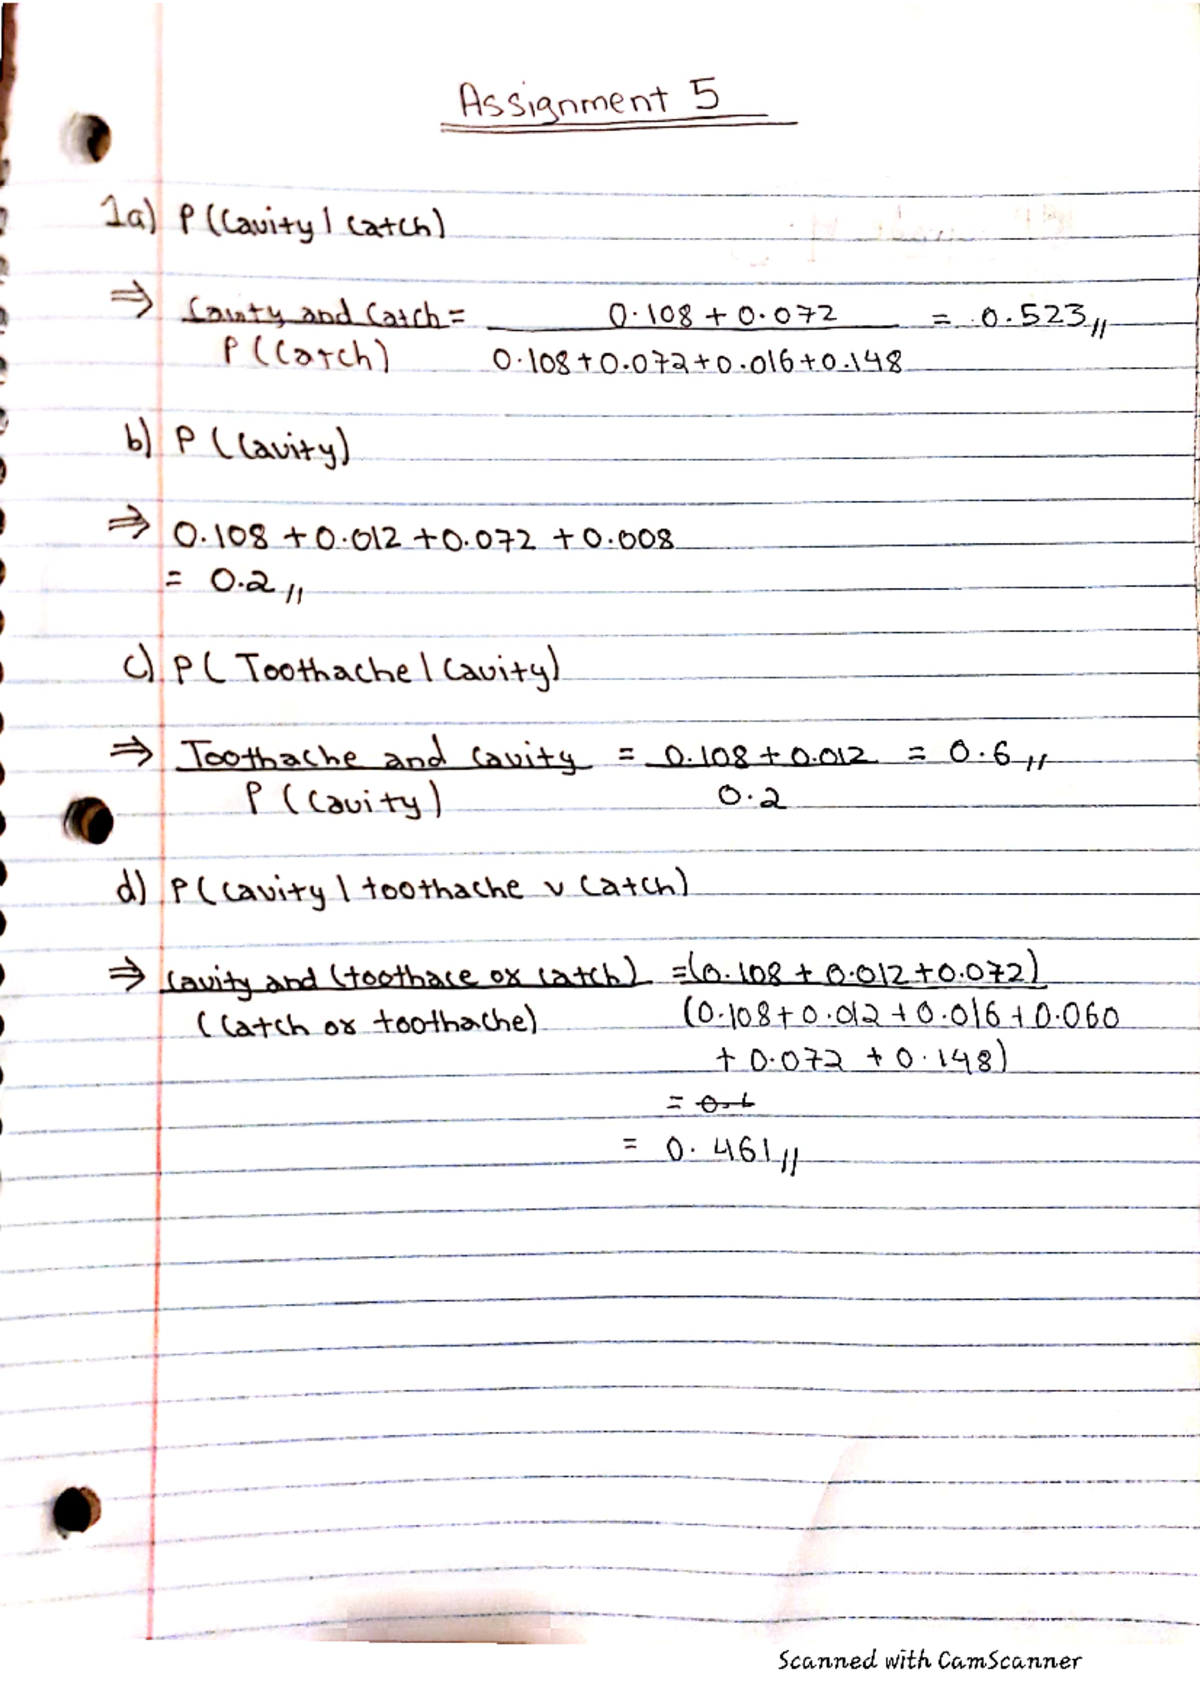 Assignment 5
1a) P(Cavity | Catch)
⇒ Cavity and Catch = 0.108 + 0.072 = 0.523 //
P(Catch) 0.108+0.072+0.016+0.148
b) P(Cavity)
⇒ 0.108 + 0.012 + 0.072 + 0.008
= 0.2 //
c) P( Toothache | Cavity)
⇒ Toothache and Cavity = 0.108 + 0.012 = 0.6 //
P(Cavity) 0.2
d) P(Cavity | toothache v Catch)
⇒ Cavity and (toothace or catch) =(0.108 + 0.012+0.072)
(Catch or toothache) (0.108+0.012+0.016+0.060
+ 0.072 + 0.148)
=
= 0.461 //
Scanned with CamScanner